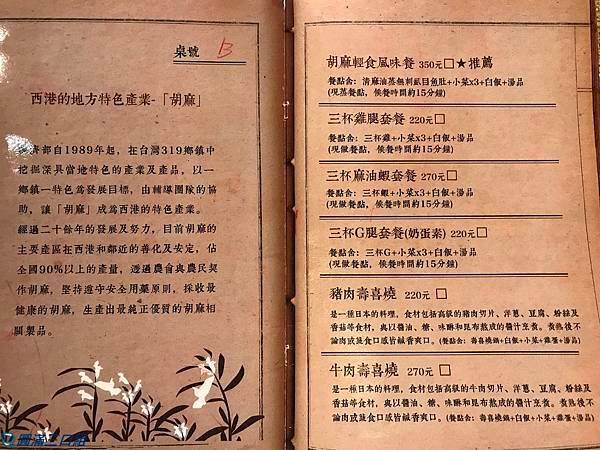 桌號 B
西港的地方特色產業-「胡麻」
濟部自1989年起，在台灣319鄉鎮中
挖掘深具當地特色的產業及產品，以一
鄉鎮一特色為發展目標，由輔導團隊的協
助，讓「胡麻」成為西港的特色產業。
經過二十餘年的發展及努力，目前胡麻的
主要產區在西港和鄰近的善化及安定，佔
全國90%以上的產量，透過農會與農民契
作胡麻，堅持遵守安全用藥原則，採收最
健康的胡麻，生產出最純正優質的胡麻相
關製品。
胡麻輕食風味餐 350元□★推薦
餐點含：清麻油蒸無刺虱目魚肚+小菜x3+白飯+湯品
(現蒸餐點，候餐時間約15分鐘)
三杯雞腿套餐 220元□
餐點含：三杯雞+小菜x3+白飯+湯品
(現做餐點，候餐時間約15分鐘)
三杯麻油蝦套餐 270元□
餐點含：三杯蝦+小菜x3+白飯+湯品
(現做餐點，候餐時間約15分鐘)
三杯G腿套餐(奶蛋素) 220元□
餐點含：三杯G+小菜x3+白飯+湯品
(現做餐點，候餐時間約15分鐘)
豬肉壽喜燒 220元 □
是一種日本的料理，食材包括高級的豬肉切片、洋蔥、豆腐、粉絲及
香菇等食材，與以醬油、糖、味醂和昆布熬成的醬汁烹食。煮熟後不
論肉或是食口感皆鹹香爽口。(餐點含：壽喜燒鍋+白飯+小菜+雞蛋+湯品)
牛肉壽喜燒 270元 □
是一種日本的料理，食材包括高級的牛肉切片、洋蔥、豆腐、粉絲及
香菇等食材，與以醬油、糖、味醂和昆布熬成的醬汁烹食。煮熟後不
論肉或是食口感皆鹹香爽口。(餐點含：壽喜燒鍋+白飯+小菜+雞蛋+湯品)